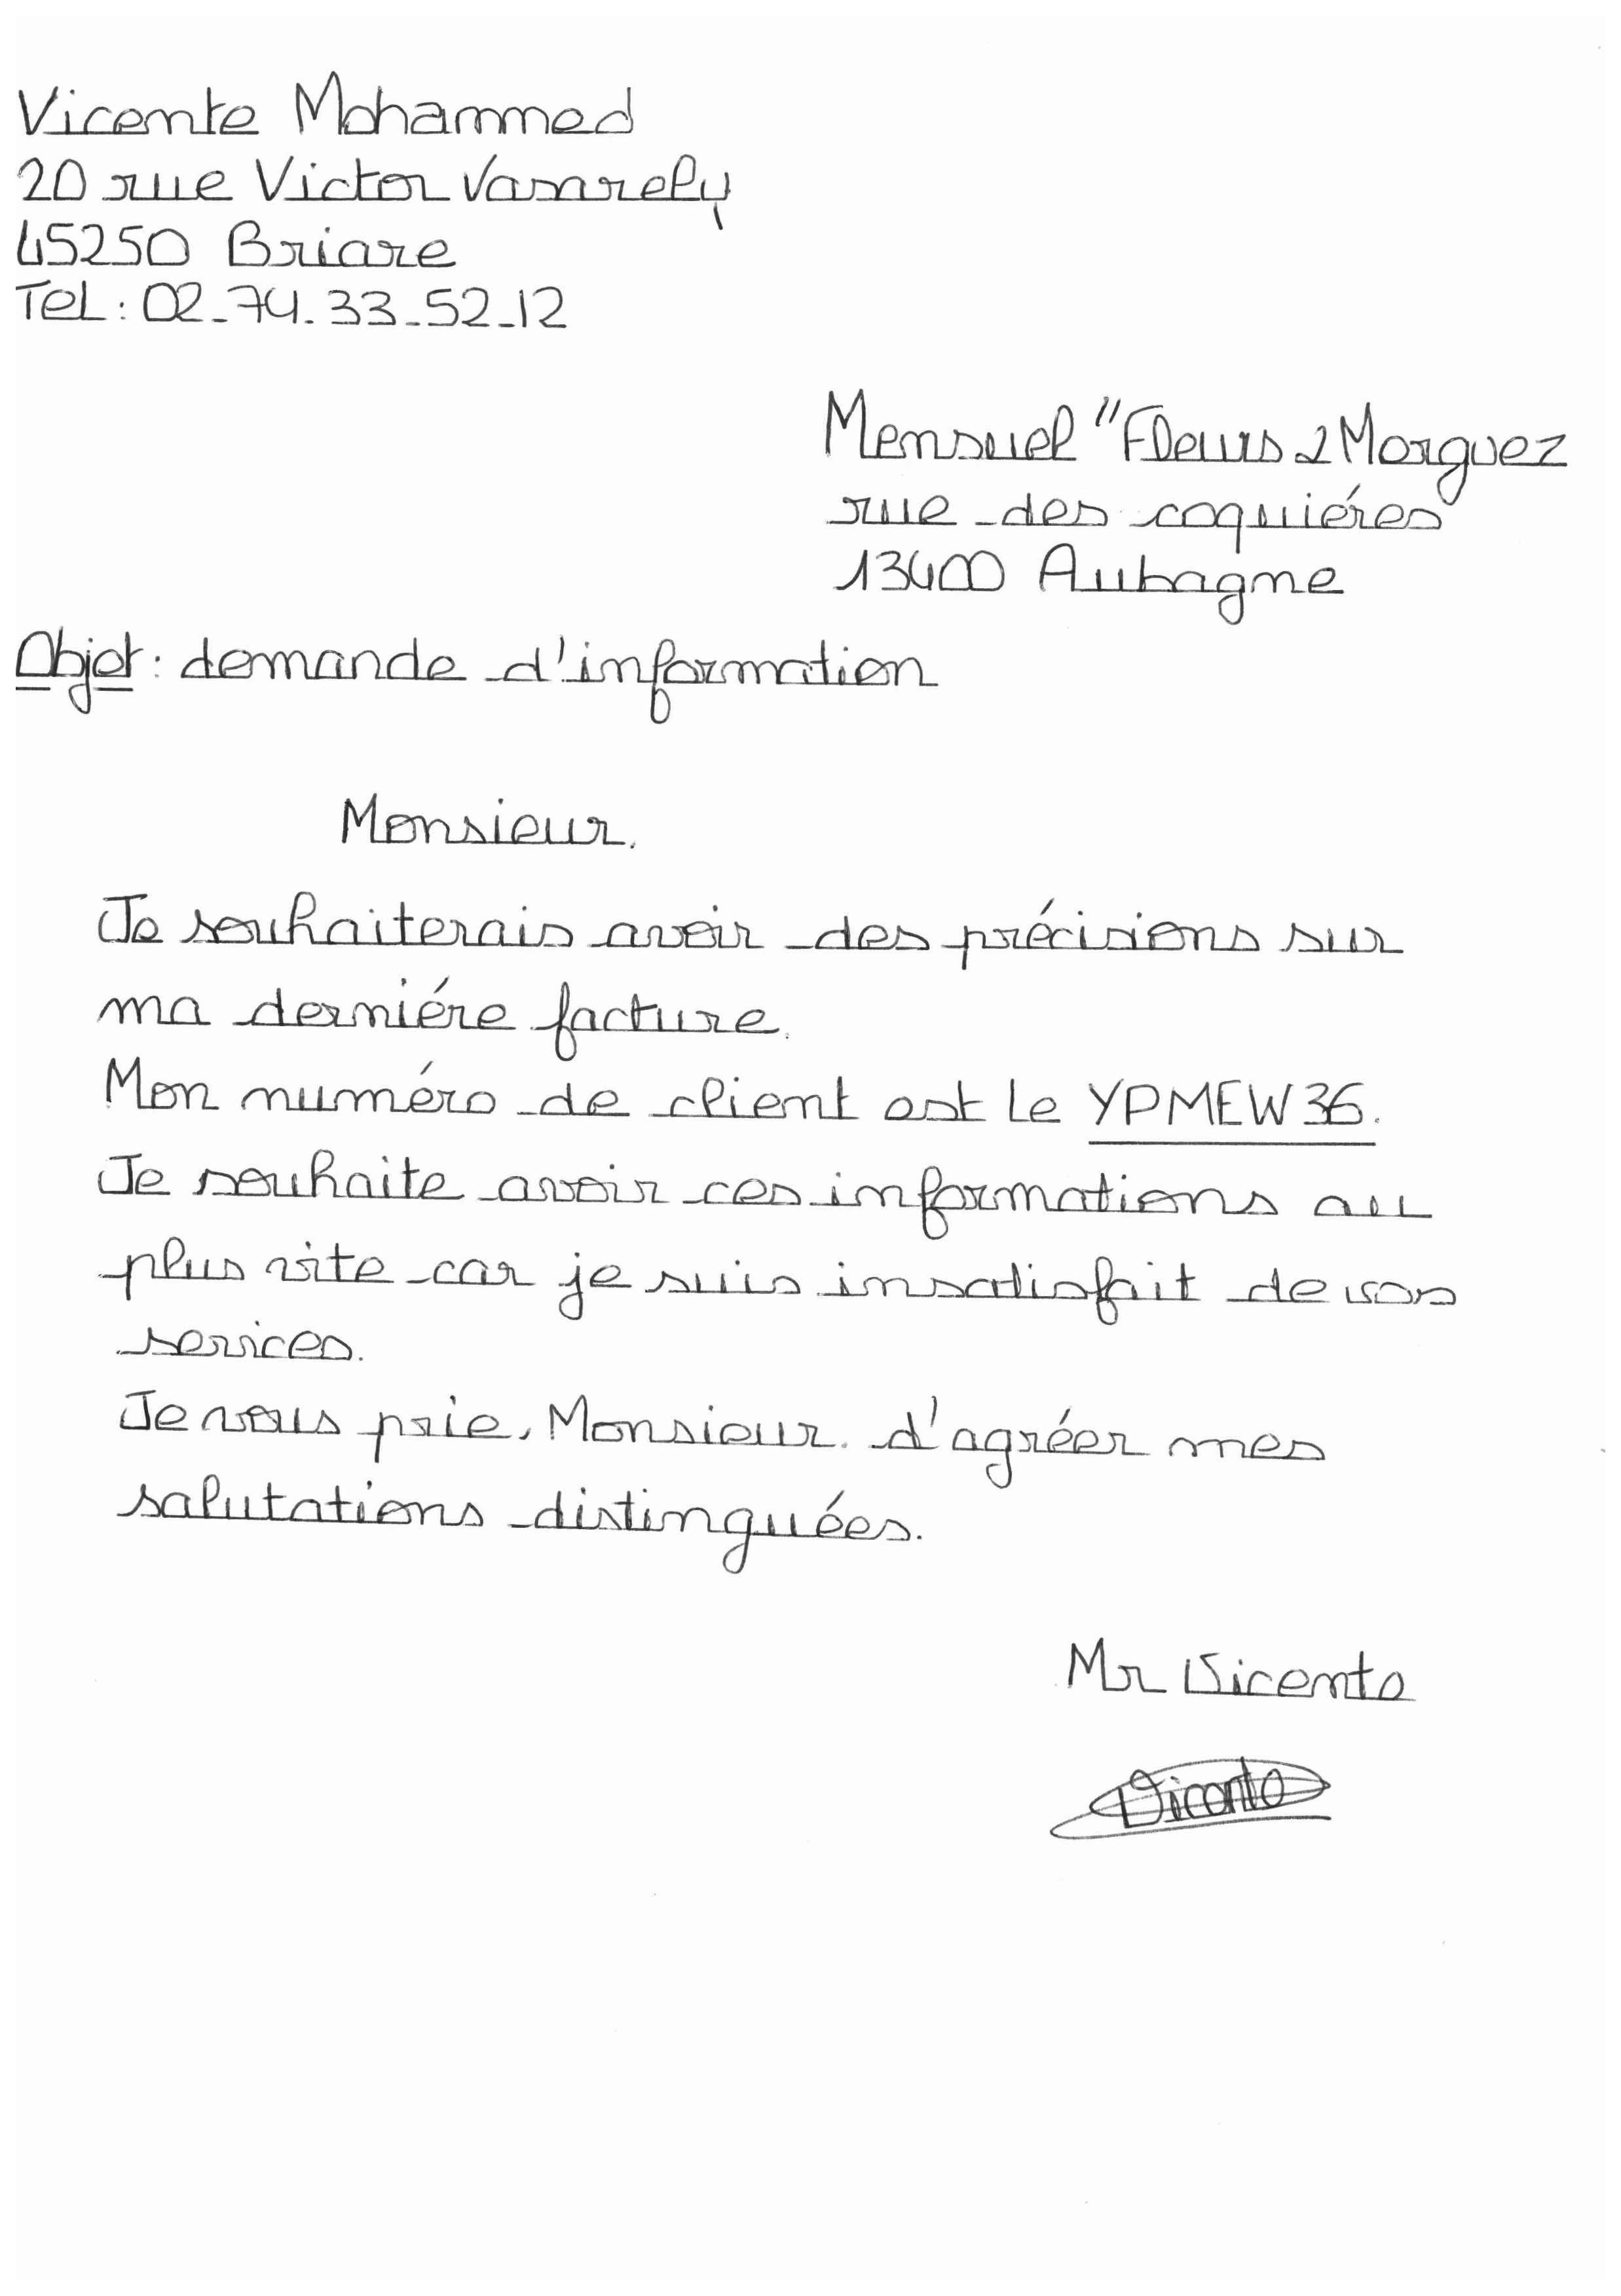 Vicente Mohammed
20 rue Victor Vasarely
45250 Briare
Tel : 02_74_33_52_12
Mensuel "Fleurs 2 Morguez
rue des coquiéres
13400 Aubagne
Objet : demande d'information
Monsieur.
Je souhaiterais avoir des précisions sur
ma derniére facture.
Mon numéro de client est le YPMEW36.
Je souhaite avoir ces informations au
plus vite car je suis insatisfait de vos
services.
Je vous prie, Monsieur. d'agréer mes
salutations distinguées.
Mr Vicente
Vicente